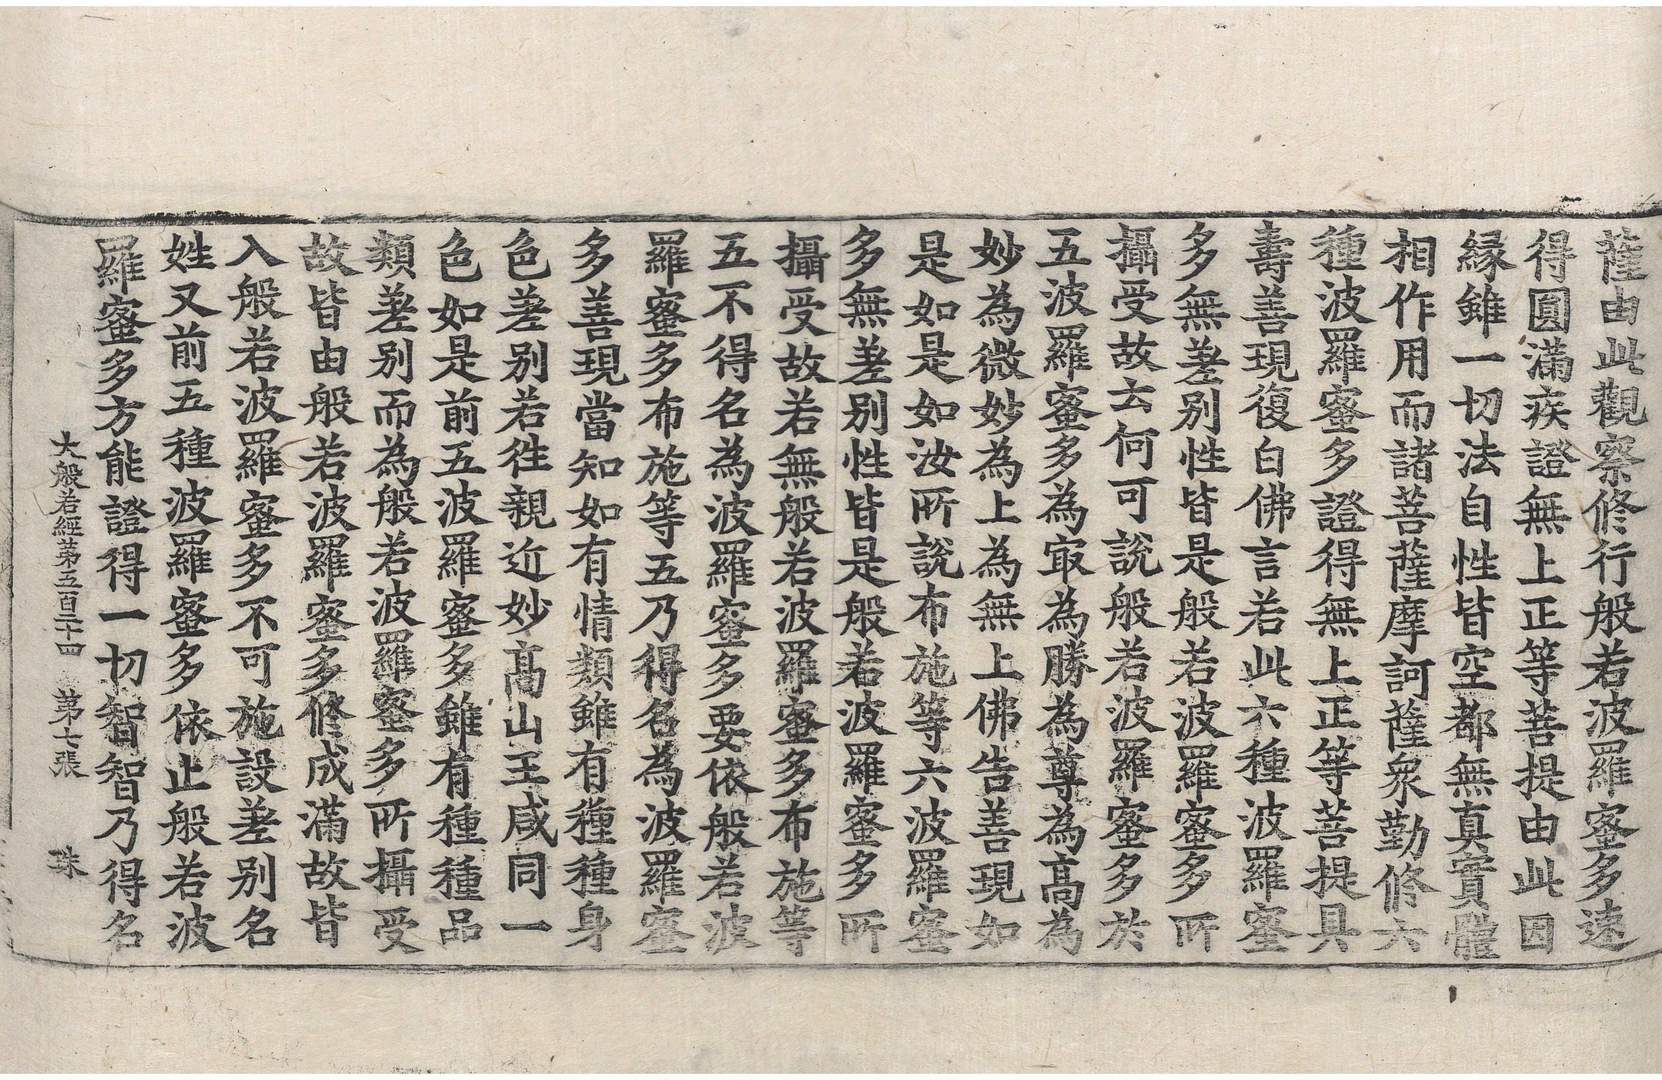 薩由此觀察修行般若波羅蜜多速
得圓滿疾證無上正等菩提由此因
緣雖一切法自性皆空都無真實體
相作用而諸菩薩摩訶薩衆勤修六
種波羅蜜多證得無上正等菩提具
壽善現復白佛言若此六種波羅蜜
多無差別性皆是般若波羅蜜多所
攝受故云何可說般若波羅蜜多於
五波羅蜜多為㝡為勝為尊為高為
妙為微妙為上為無上佛告善現如
是如是如汝所說布施等六波羅蜜
多無差別性皆是般若波羅蜜多所
攝受故若無般若波羅蜜多布施等
五不得名為波羅蜜多要依般若波
羅蜜多布施等五乃得名為波羅蜜
多善現當知如有情類雖有種種身
色差別若往親近妙高山王咸同一
色如是前五波羅蜜多雖有種種品
類差別而為般若波羅蜜多所攝受
故皆由般若波羅蜜多修成滿故皆
入般若波羅蜜多不可施設差別名
姓又前五種波羅蜜多依止般若波
羅蜜多方能證得一切智智乃得名
大般若經第五百二十四 第七張 珠